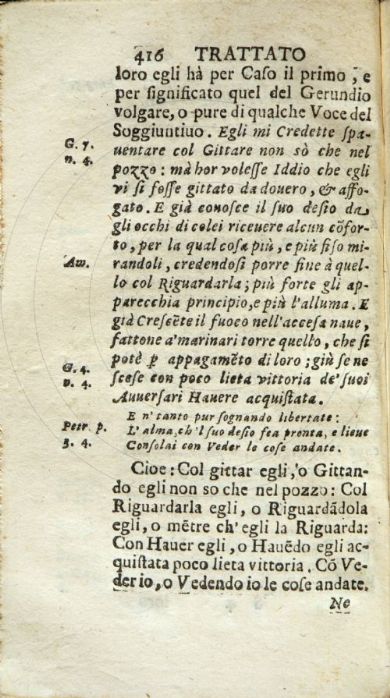 416 TRATTATO
loro egli hà per Caſo il primo, e
per ſignificato quel del Gerundio
volgare, o pure di qualche Voce del
Soggiuntiuo. Egli mi Credette ſpa-
G. 7. uentare col Gittare non sò che nel
n. 4. pozzo: mà hor voleſſe Iddio che egli
vi ſi foſſe gittato da douero, & affo-
gato. E già conoſce il ſuo deſio da
gli occhi di colei riceuere alcun cõfor-
to, per la qual coſa più, e più fiſo mi-
Am. randoli, credendoſi porre fine à quel-
lo col Riguardarla; più forte gli ap-
parecchia principio, e più l'alluma. E
già Creſcẽte il fuoco nell'acceſa naue,
fattone a'marinari torre quello, che ſi
G. 4. potè ꝑ appagamẽto di loro; giù ſe ne
n. 4. sceſe con poco lieta vittoria de'ſuoi
Auuerſari Hauere acquiſtata.
E n'tanto pur ſognando libertate:
Petr. p. L'alma, ch'l ſuo deſio fea pronta, e lieue
3. 4. Conſolai con Veder le coſe andate.
Cioe: Col gittar egli, ò Gittan-
do egli non so che nel pozzo: Col
Riguardarla egli, o Riguardãdola
egli, o mẽtre ch'egli la Riguarda:
Con Hauer egli, o Hauẽdo egli ac-
quiſtata poco lieta vittoria. Cõ Ve-
der io, o Vedendo io le coſe andate.
Ne